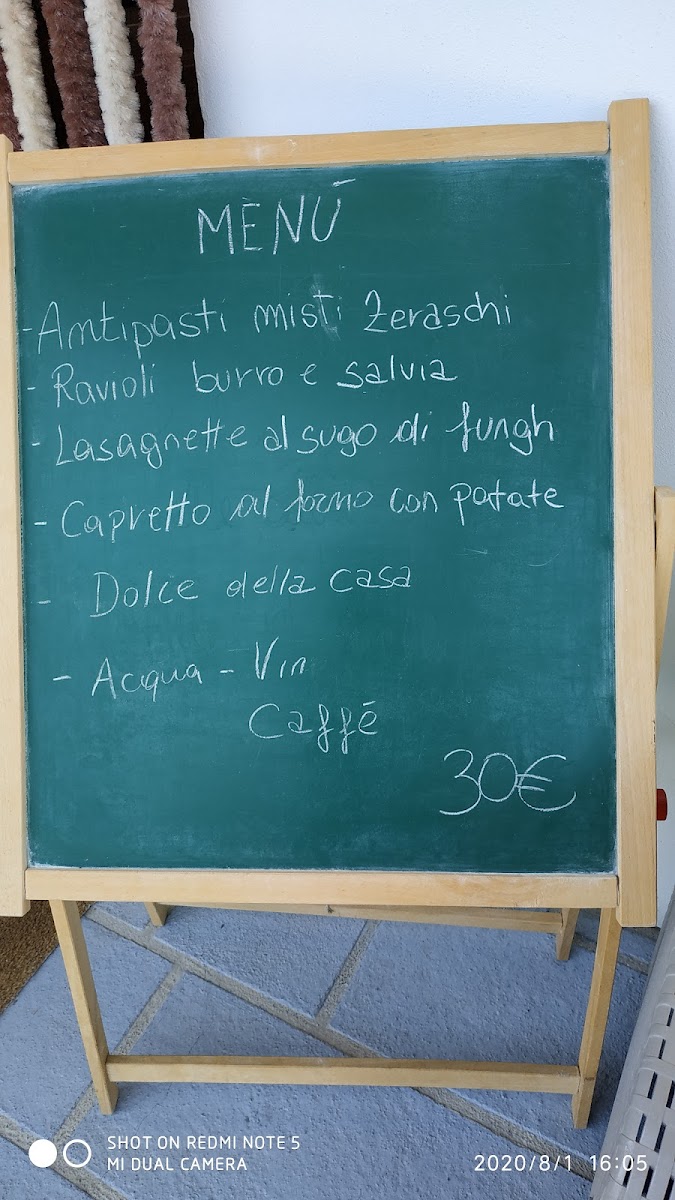 MENÚ
- Antipasti misti Zeraschi
- Ravioli burro e salvia
- Lasagnette al sugo di fungh
- Capretto al forno con patate
- Dolce della casa
- Acqua - Vin
Caffé
30€
SHOT ON REDMI NOTE 5
MI DUAL CAMERA
2020/8/1 16:05